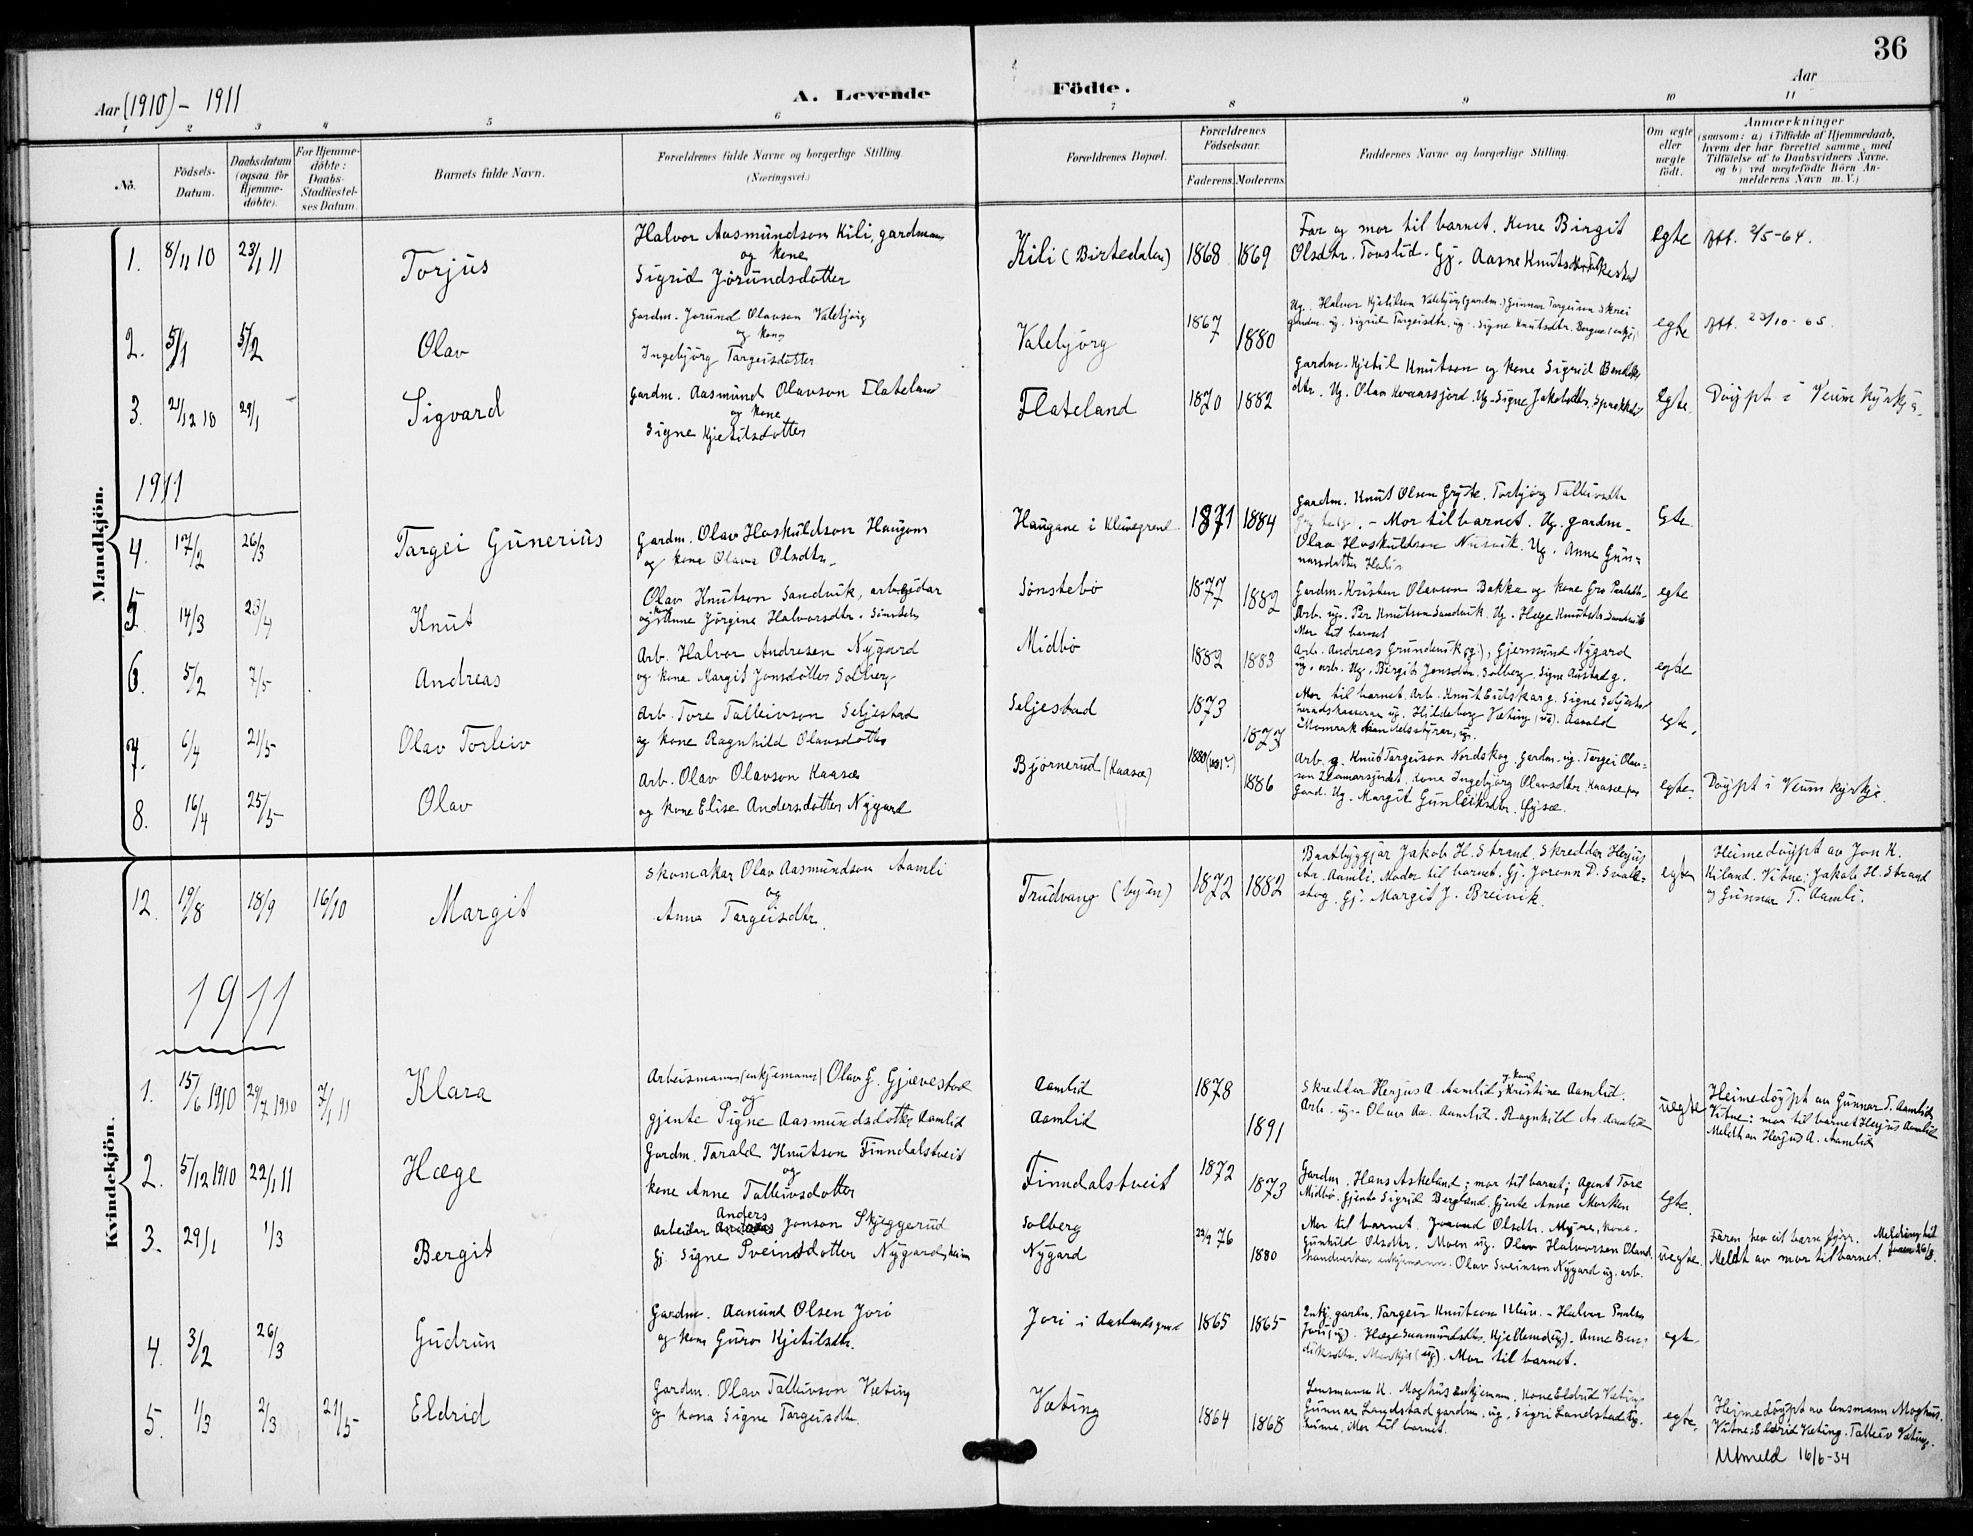 36
Aar (1910) - 1911
A. Levende Födte.
Aar
1 2 3 4 5 6 7 8 9 10 11
No.
Födsels-Datum.
Daabsdatum (ogsaa for Hjemme-döbte).
For Hjemme-döbte: Daabs-Stadfæstel-ses Datum.
Barnets fulde Navn.
Forældrenes fulde Navne og borgerlige Stilling. (Næringsvei.)
Forældrenes Bopæl.
Forældrenes Födselsaar.
Faderens. Moderens.
Faddernes Navne og borgerlige Stilling.
Om ægte eller uægte födt.
Anmærkninger
(saasom: a) i Tilfælde af Hjemmedaab, hvem der har forrettet samme, med Tilföielse af to Daabsvidners Navne, og b) ved uægtefödte Börn An-melderens Navn m. V.)
Mandkjön.
1. 8/11 10 23/1 11 Torjus
Halvor Aasmundson Kili, gardmann
og kone
Sigrid Jörundsdotter
Kili (Birtedalen) 1868 1869
Far og mor til barnet. Kone Birgit
Olsdtr. Tovslid. Gj. Aasne Knutsdtr. Falkestad
egte Att. 2/5-64.
2. 5/1 5/2 Olav
Gardm. Jorund Olavson Valebjörg
og kone
Ingebjörg Targeisdotter
Valebjörg 1867 1880
Ug. Halvor Kjetilson Valebjörg (gardm.) Gunnar Targeison Skrei
gardm. ug. Sigrid Targeisdtr. ug. Signe Knutsdtr.
egte Att. 23/10-65.
3. 21/12 10 29/1 Sigvard
Gardm. Aasmund Olavson Flateland
og kone
Signe Kjetilsdotter
Flateland 1870 1882
Gardm. Kjetil Knutson og kone Sigrid Bendiks
dtr. Ug. Olav Kvaassjord. Ug. Signe Jakobsdtr.
egte. Döypt i Veum kyrkja.
1911
4. 17/2 26/3 Targei Gunerius
Gardm. Olav Hoskuldson Haugom
og kone Olava Olsdtr.
Haugane i Kleivegrend 1871 1884
Gardm. Knut Olsen
- Mor til barnet. Ug. gardm.
Olav Hoskuldson. Ug. Anne Gun-
narsdotter
egte.
5. 14/3 23/4 Knut
Olav Knutson Sandvik, arbeidar
og kone Anne Jörgine Halvorsdtr.
Sönstebö 1877 1882
Gardm. Kristen Olavson Bakke og kone Gro
Arb. ug. Per Knutson Sandvik. Ug. Hæge Knutsdtr. Sandvik
Mor til barnet
egte
6. 5/2 7/5 Andreas
Arb. Halvor Andresen Nygard
og kona Margit Jonsdotter Solberg
Midbö 1882 1883
Arb. Andreas, Gjermund Nygard
ug. arb. Ug. Birgit Jonsdtr. Solberg. Signe Austad g.
egte
7. 6/4 21/5 Olav Torleiv
Arb. Tore Talleivson Seljestad
og kone Ragnhild Olavsdotter
Seljestad 1873 1877
Mor til barnet. Arb. Knut g. Signe Seljestad
Hildeborg Væting (ug). Aasvald
egte.
8. 16/4 25/5 Olav
Arb. Olav Olavson Kaasæ
og kone Elise Andersdotter Nygard
Björnerud (Kaasæ) 1880 1886
Arb. g. Knut Targeison Nordskog. Gardm. ug. Targei Olav-
son. kone Ingebjörg Olavsdtr. Kaasæ
Gard. Ug. Margit Gunleiksdtr.
egte. Döypt i Veum kyrkje.
12. 19/8 18/9 16/10 Margit
Skomakar Olav Aasmundson Aamli
og
Anne Targeisdtr.
Trudvang (byen) 1872 1882
Baatbyggjar Jakob H. Strand. Skreddar Herjus
Aa. Aamli. Moder til barnet. Gj. Joronn D.
skog. Gj. Margit J. Breivik.
egte
Heimedöypt av Jon K.
Kiland. Vitne: Jakob H. Strand
og Gunnar T. Aamli.
1911
Kvindekjön.
1. 15/6 1910 24/7 1910 7/1 11 Klara
Arbeismann (enkjemann) Olav G. Gjævestad
og
gjente Signe Aasmundsdotter Aamlid
Aamlid
Aamlid
1878 1891
Skreddar Herjus A. Aamlid, og kone Kristine Aamlid.
Arb. ug. Olav Aa. Aamlid. Ragnhild Aa. Aamlid
uegte
Heimedöypt av Gunnar T. Aamlid
Vitne: mor til barnet Herjus Aamlid
Meldt av Herjus A. Aamlid
2. 5/12 1910 22/1 11 Hæge
Gardm. Tarald Knutson Finndalstveit
og
kone Anne Talleivsdotter
Finndalstveit 1872 1873
Gardm. Hans Askeland; mor til barnet; Agent Tore
Midbö. Gjente Sigrid Bergland. Gjente Anne Morken
egte.
3. 29/1 1/3 Bergit
Arbeidar Anders Jonson Skjeggerud
Gj. Signe Sveinsdotter Nygard
Solberg
Nygard
23/9 76 1880
Mor til barnet. Joraand Olsdtr. Myrne, kone.
Gunhild Olsdtr. Moen ug. Olav Halvorsen Oland,
handverkar enkjemann. Olav Sveinson Nygard ug. arb.
uegte.
Faren hev eit barn fyrr.
Meldt av mor til barnet.
4. 3/2 26/3 Gudrun
Gardm. Aanund Olsen Jori
og kona Guro Kjetilsdtr.
Jori i Aaslandsgrend 1865 1865
Targeir Knutson. - Halvor
Jori (ug). Hæge. Anne Ben-
diksdtr. (ug). Mor til barnet.
egte
5. 1/3 2/3 21/5 Eldrid
Gardm. Olav Talleivson Væting
og kona Signe Targeisdtr.
Væting 1864 1868
Lensmann K. Moghus enkjemann, kone Eldrid Væting
Gunnar Landstad gardm. ug. Sigri Landstad ug.
Mor til barnet.
egte.
Heimedöypt av lensmann Moghus.
Vitne: Eldrid Væting. Talleiv Væting.
Utmeld 16/6-34